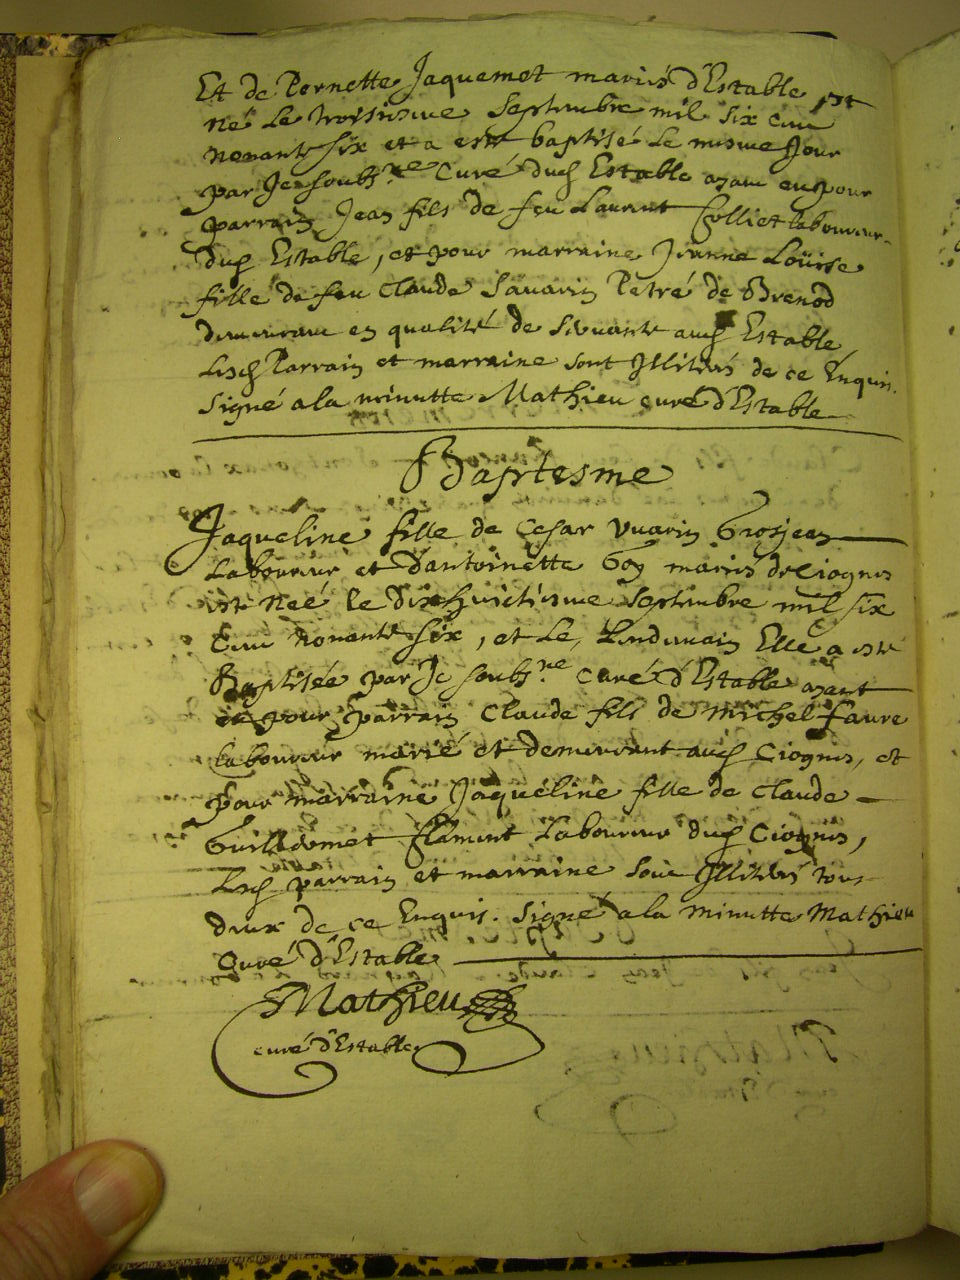 Et de Pernette Jaquemet mariés d'Estable est
né le troisiesme septembre mil six cent
nonante six et a esté baptisé le mesme jour
par Je soubs.ne Curé dud Estable ayant eu pour
parrain Jean fils de feu Laurent Colliet laboureur
dud Estable, et pour marraine Jeanne Loüise
fille de feu Claude Savarin Petré de Brenod
demeurant en qualité de servante aud Estable
Lesd Parrain et marraine sont Illiterés de ce Enquis.
signé a la minutte Mathieu curé d'Estable
Baptesme
Jaqueline fille de Cesar Vuarin Grosjean
Laboureur et d'antoinette Goy mariés de Ciognes
est neé le dixhuictiesme septembre mil six
Cent nonante six, et le Lendemain Elle a esté
Baptisée par Je soubs.ne Curé d'Estable ayant
eu pour parrain Claude fils de Michel Favre
laboureur marié et demeurant aud Ciognes, et
pour marraine Jaqueline fille de Claude
Guillermet Flament Laboureur dud Ciognes,
Lesd parrain et marraine sont Illiterés tous
deux de ce Enquis. Signé a la minutte Mathieu
Curé d'Estable
Mathieu
curé d'Estable